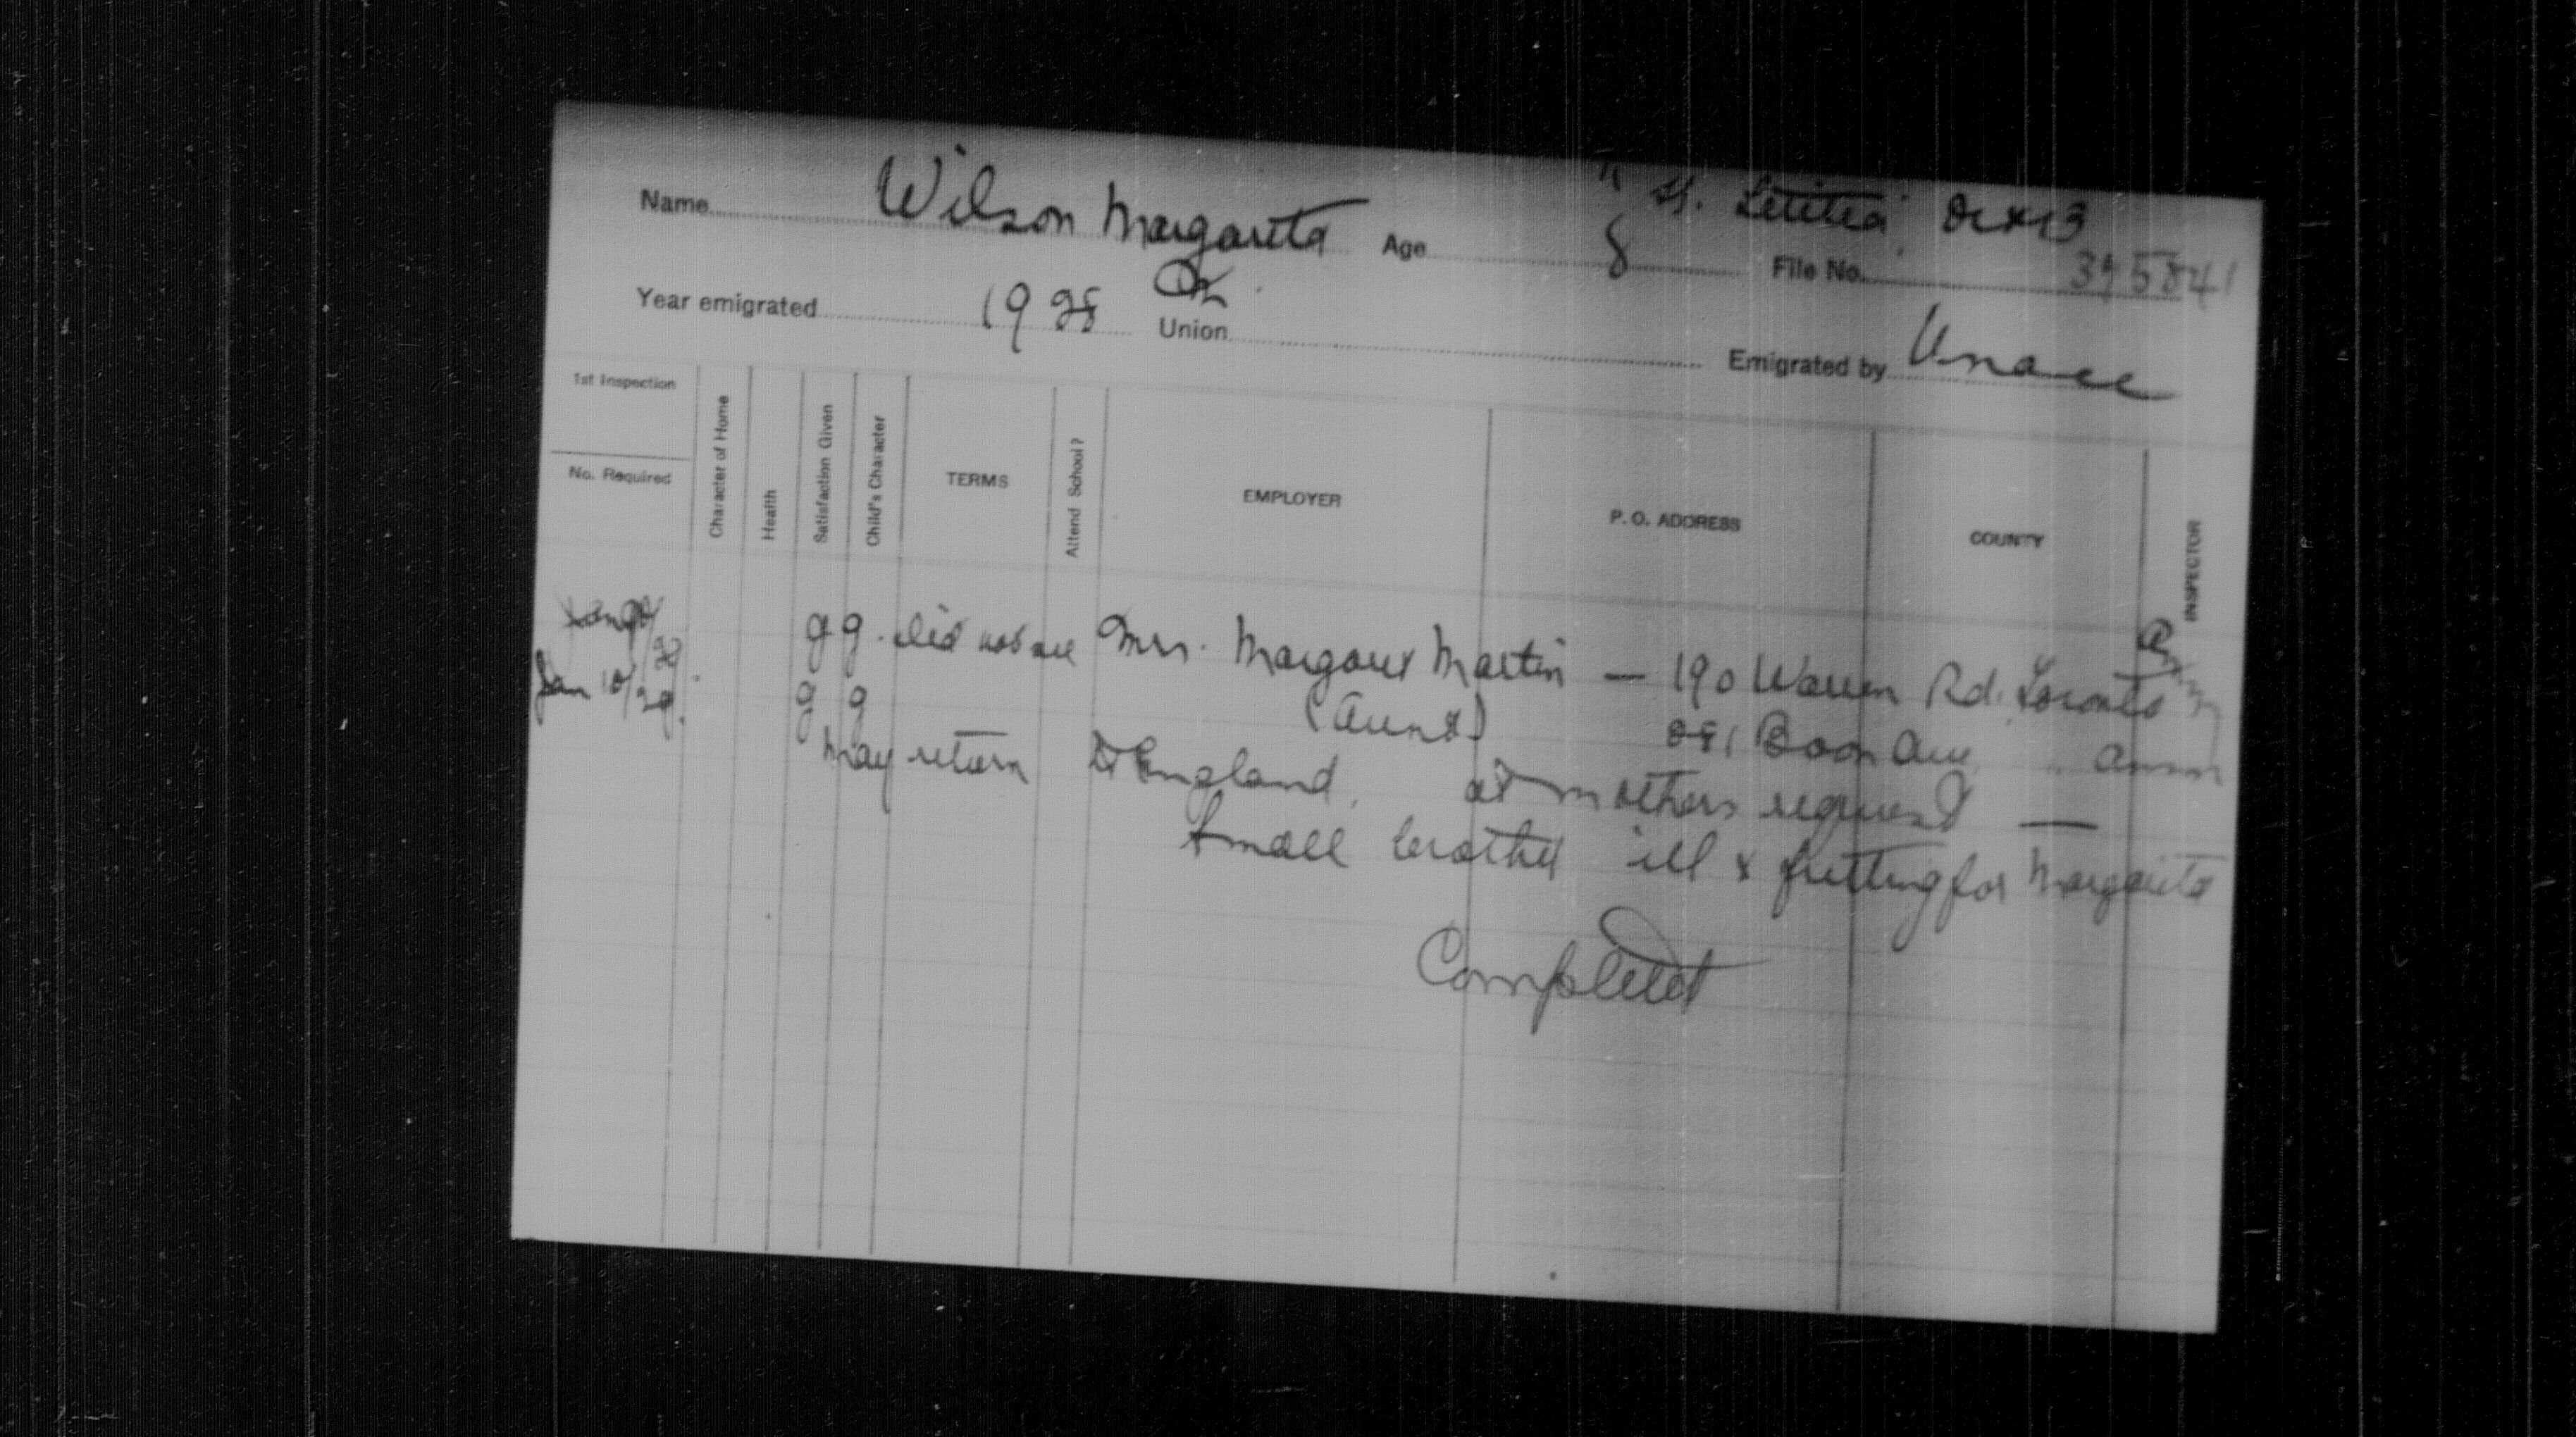 "Letitia" Oct 13
Name Wilson Margarita Age 8 File No. 395841
Year emigrated 1928 Union Emigrated by
1st Inspection
No. Required
Character of Home
Health
Satisfaction Given
Child's Character
TERMS
Attend School?
EMPLOYER
P. O. ADDRESS
COUNTY
INSPECTOR
g g. did not see Mrs. Margaret Martin — 190 Warren Rd. Toronto
Jan 10/29. g g (Aunt) Boon Ave
May return to England, at mothers request —
Small brother ill & fretting for Margarita
Completed